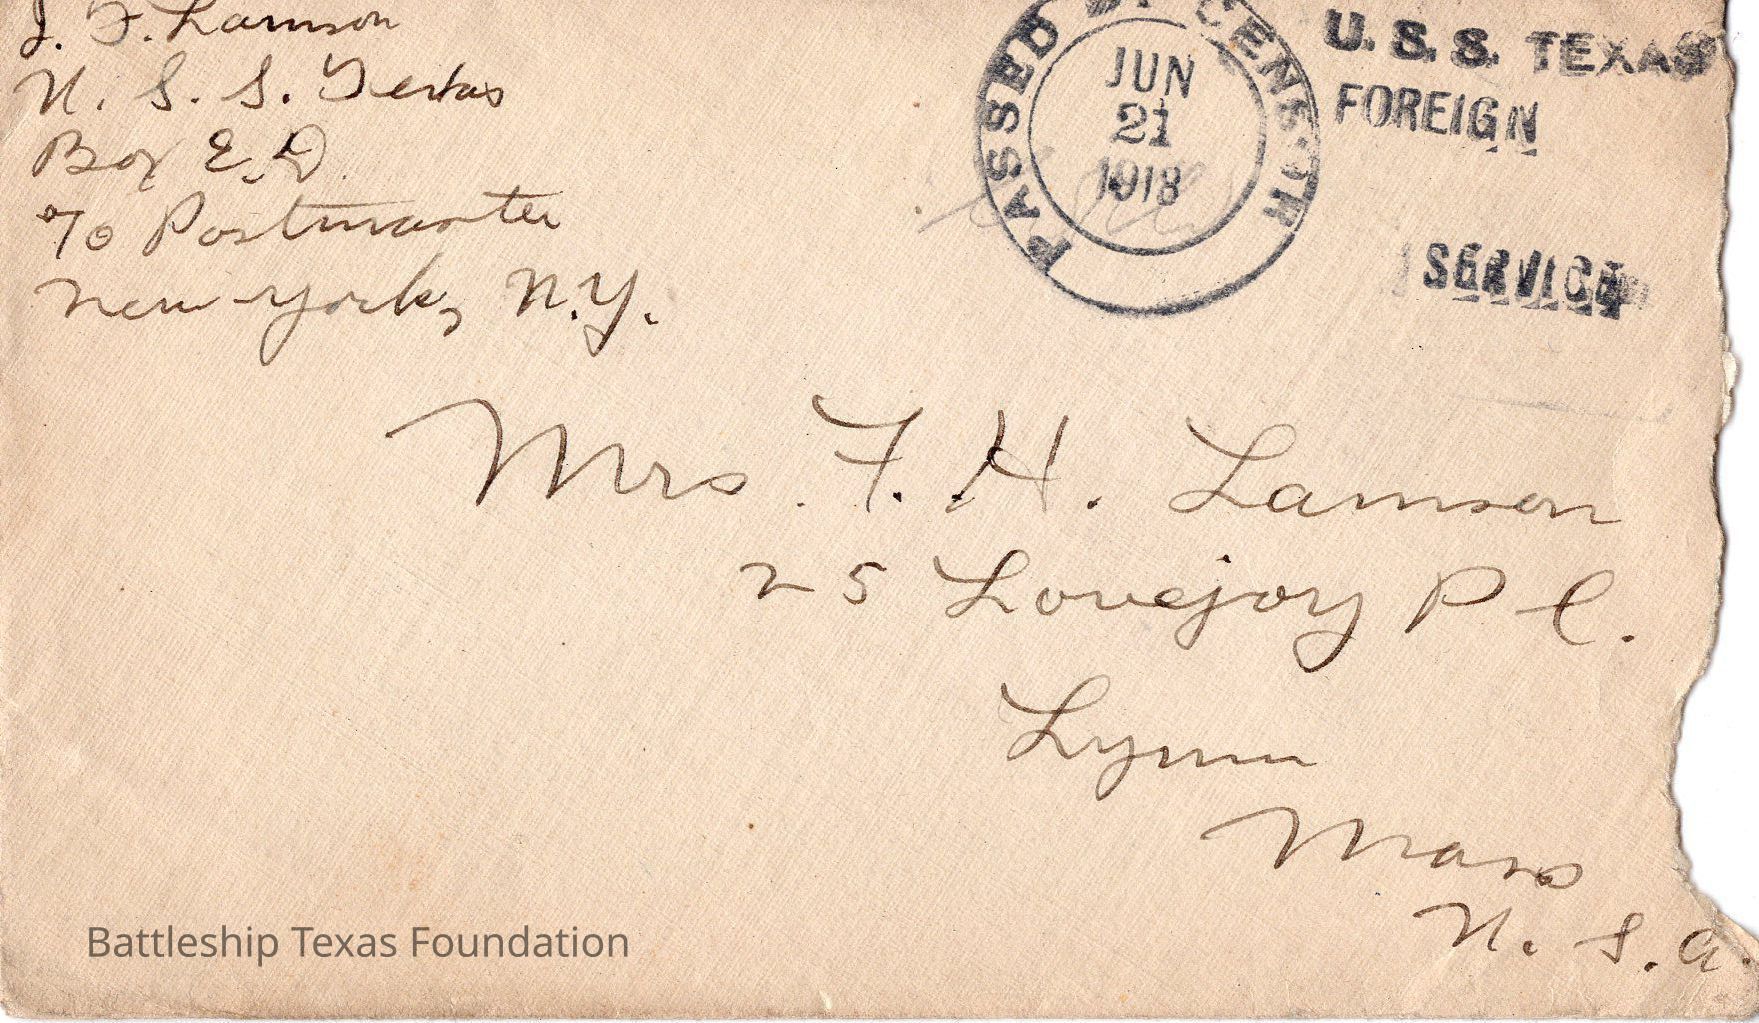 J. F. Lamson
U. S. S. Texas
Box E.D.
c/o Postmaster
New York, N.Y.
PASSED BY CENSOR
JUN
21
1918
U.S.S. TEXAS
FOREIGN
SERVICE
Mrs. F. H. Lamson
25 Lovejoy Pl.
Lynn
Mass
U. S. A.
Battleship Texas Foundation